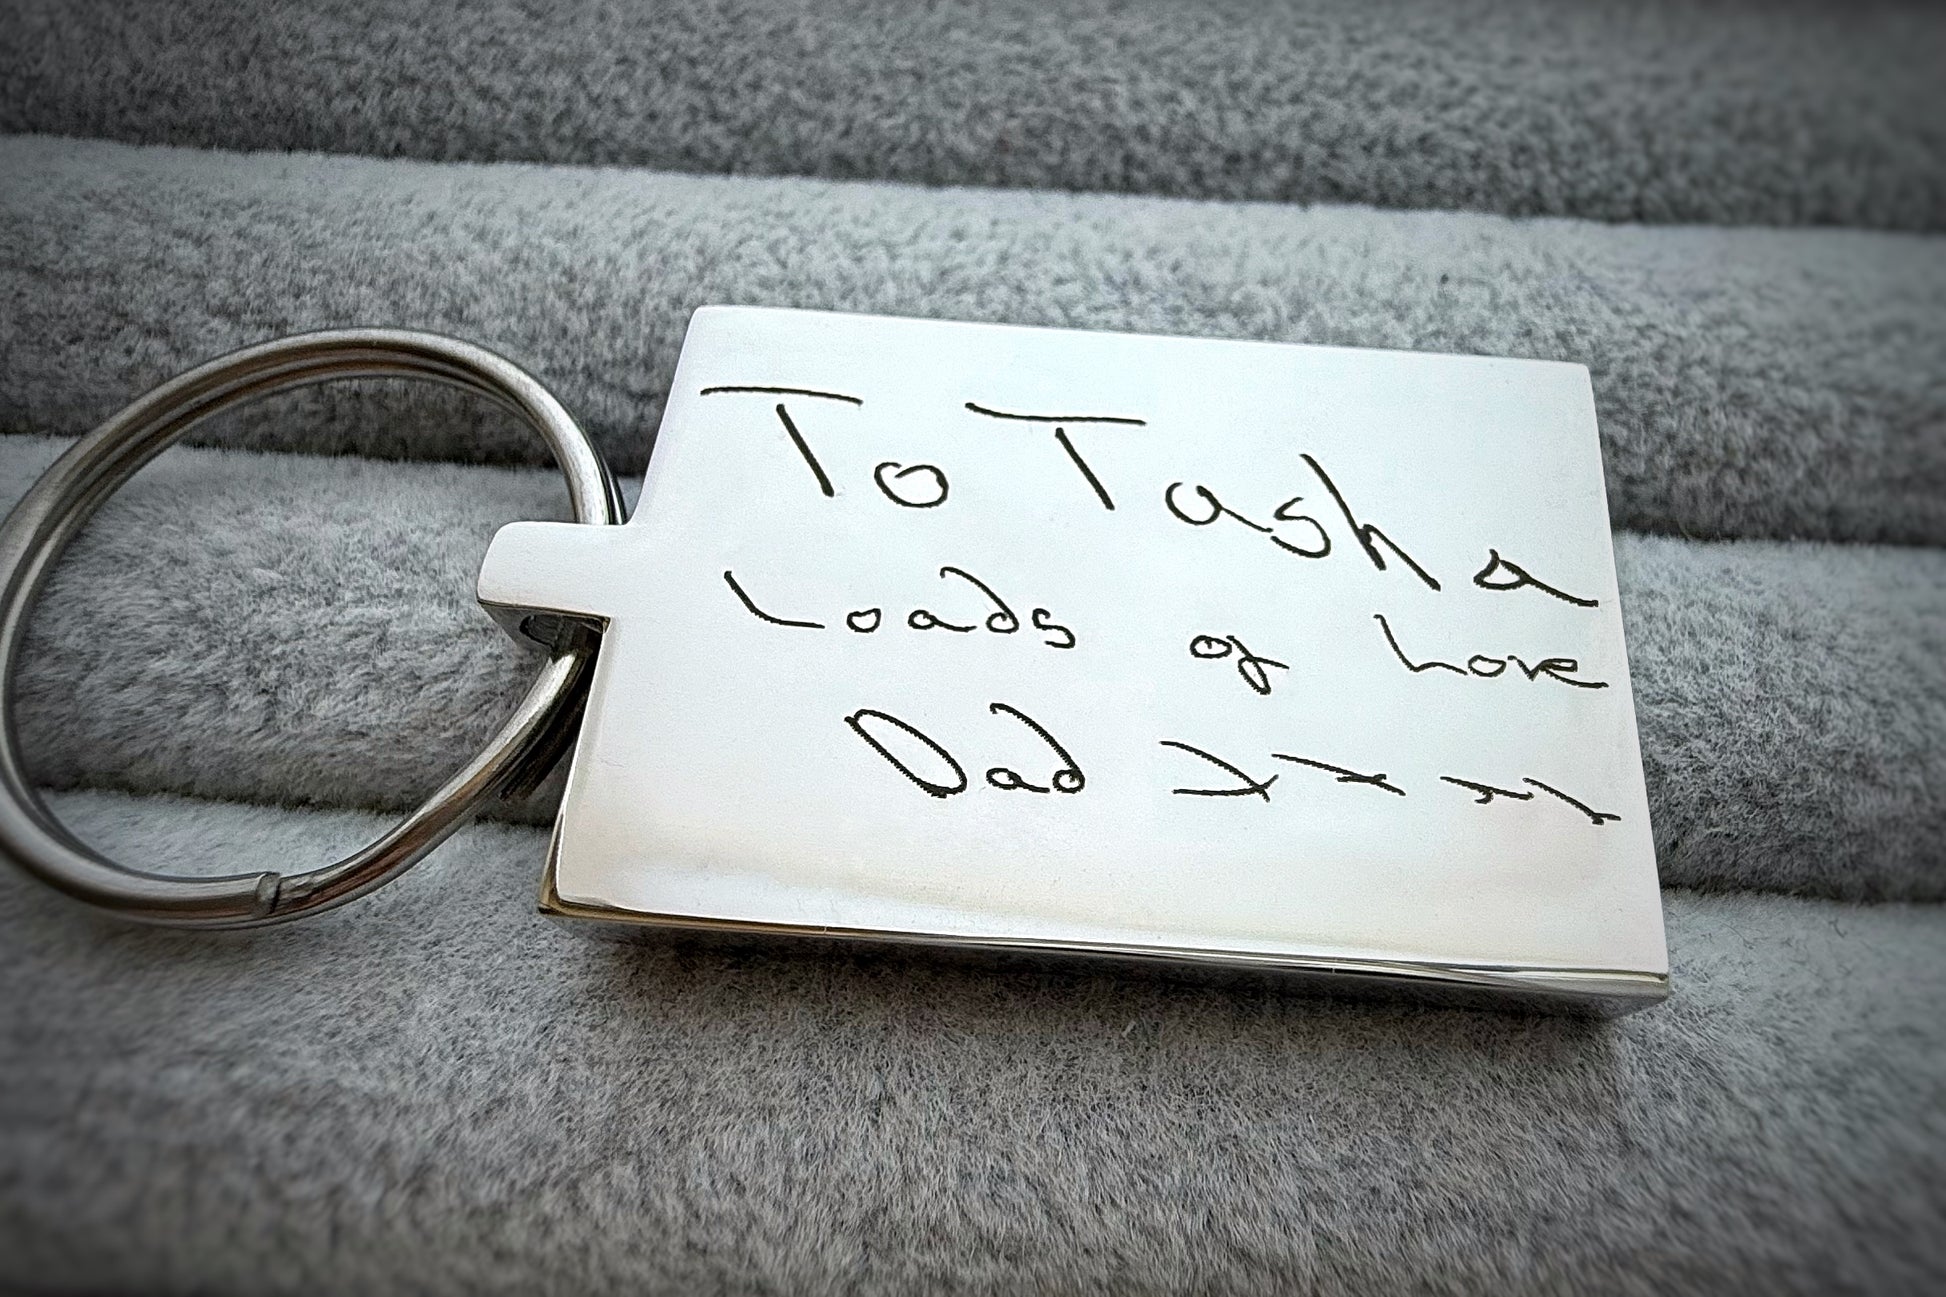 To Tasha
Loads of Love
Dad xxxx